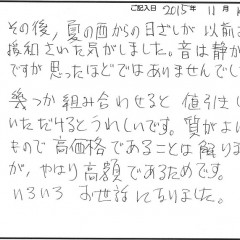 ご記入日 2015年 11月
その後，夏の西からの日ざしが 以前
緩和された気がしました。音は静か
ですが 思ったほどではありませんでし
幾つか 組み合わせると 値引き
いただけるとうれしいです。質がよい
もので 高価格であることは 解りま
が，やはり 高額であるためです。
いろいろ お世話になりました。